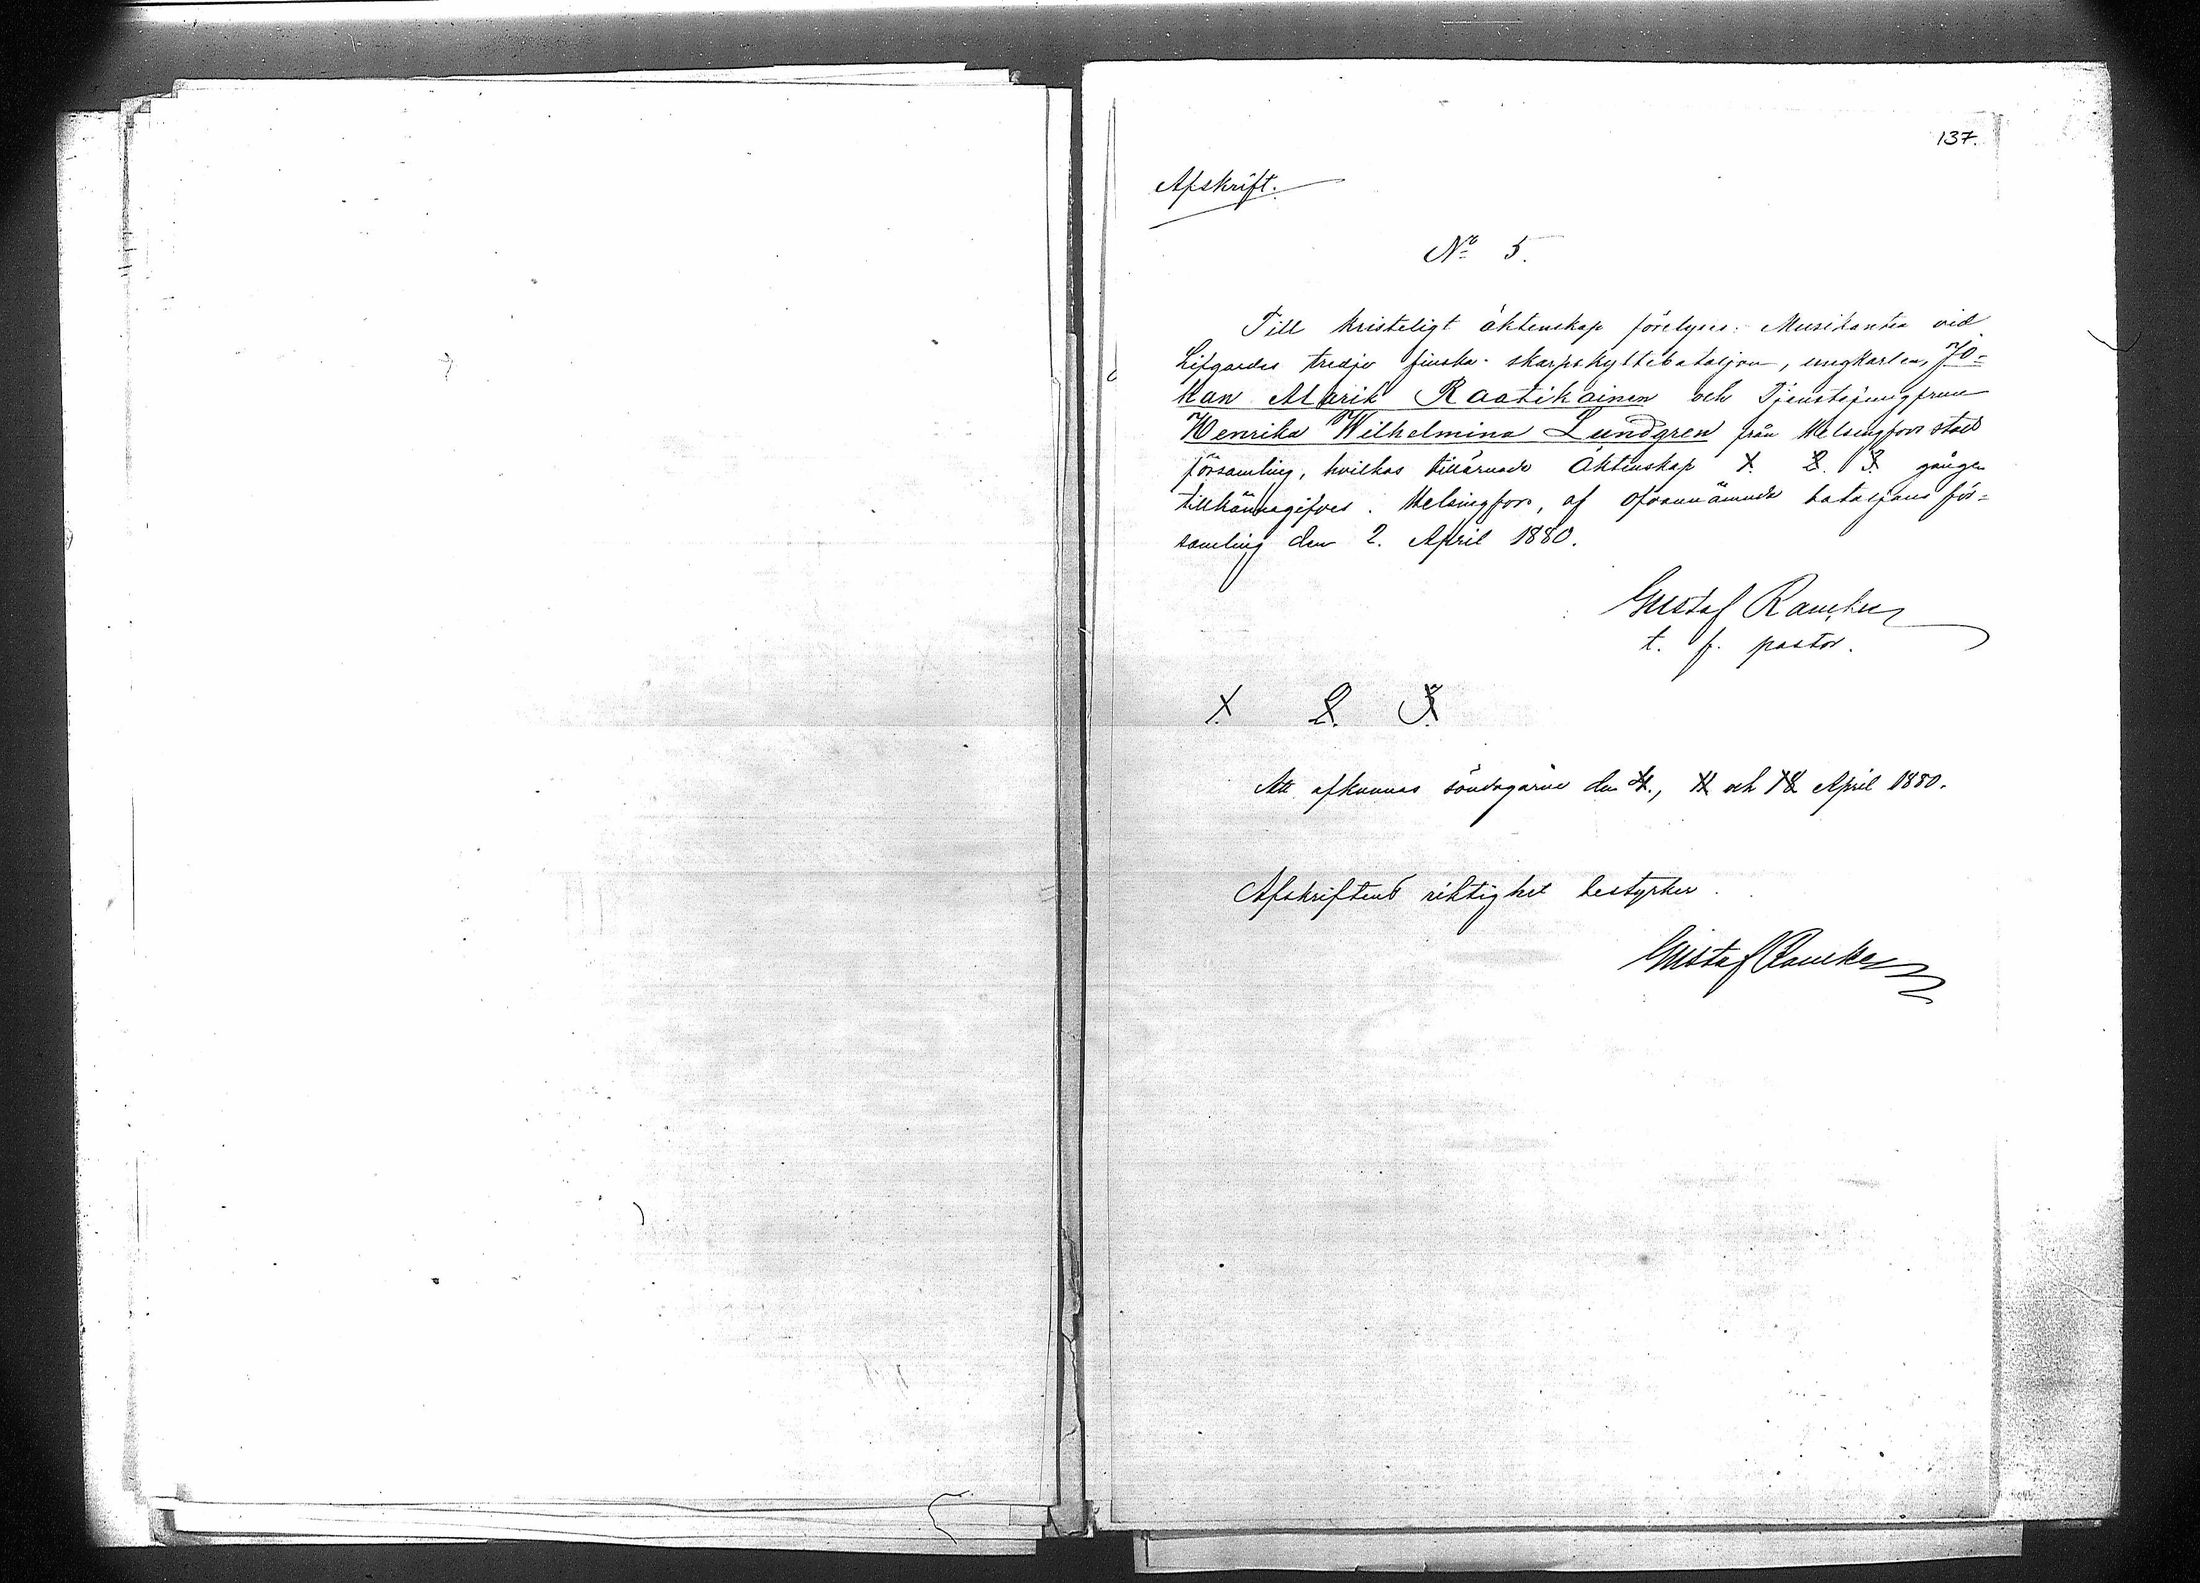 137.
Afskrift.
No 5.
Till kristeligt äktenskap förelyses: Musikanten vid
Lifgardes tredje finska skarpskyttebataljon, ungkarlen, Jo=
han Alarik Raatikainen och Tjenstejungfrun
Henrika Wilhelmina Lundgren från Helsingfors stads
församling, hvilkas tillärnade äktenskap 1. 2. 3. gången
tillkännagifves. Helsingfors, af ofvannämnde bataljons för=
samling den 2. April 1880.
Gustaf Rancken
t. f. pastor.
1. 2. 3.
Att afkunnas söndagarne den 4., 11 och 18 April 1880.
Afskriftens riktighet bestyrker.
Gustaf Rancken